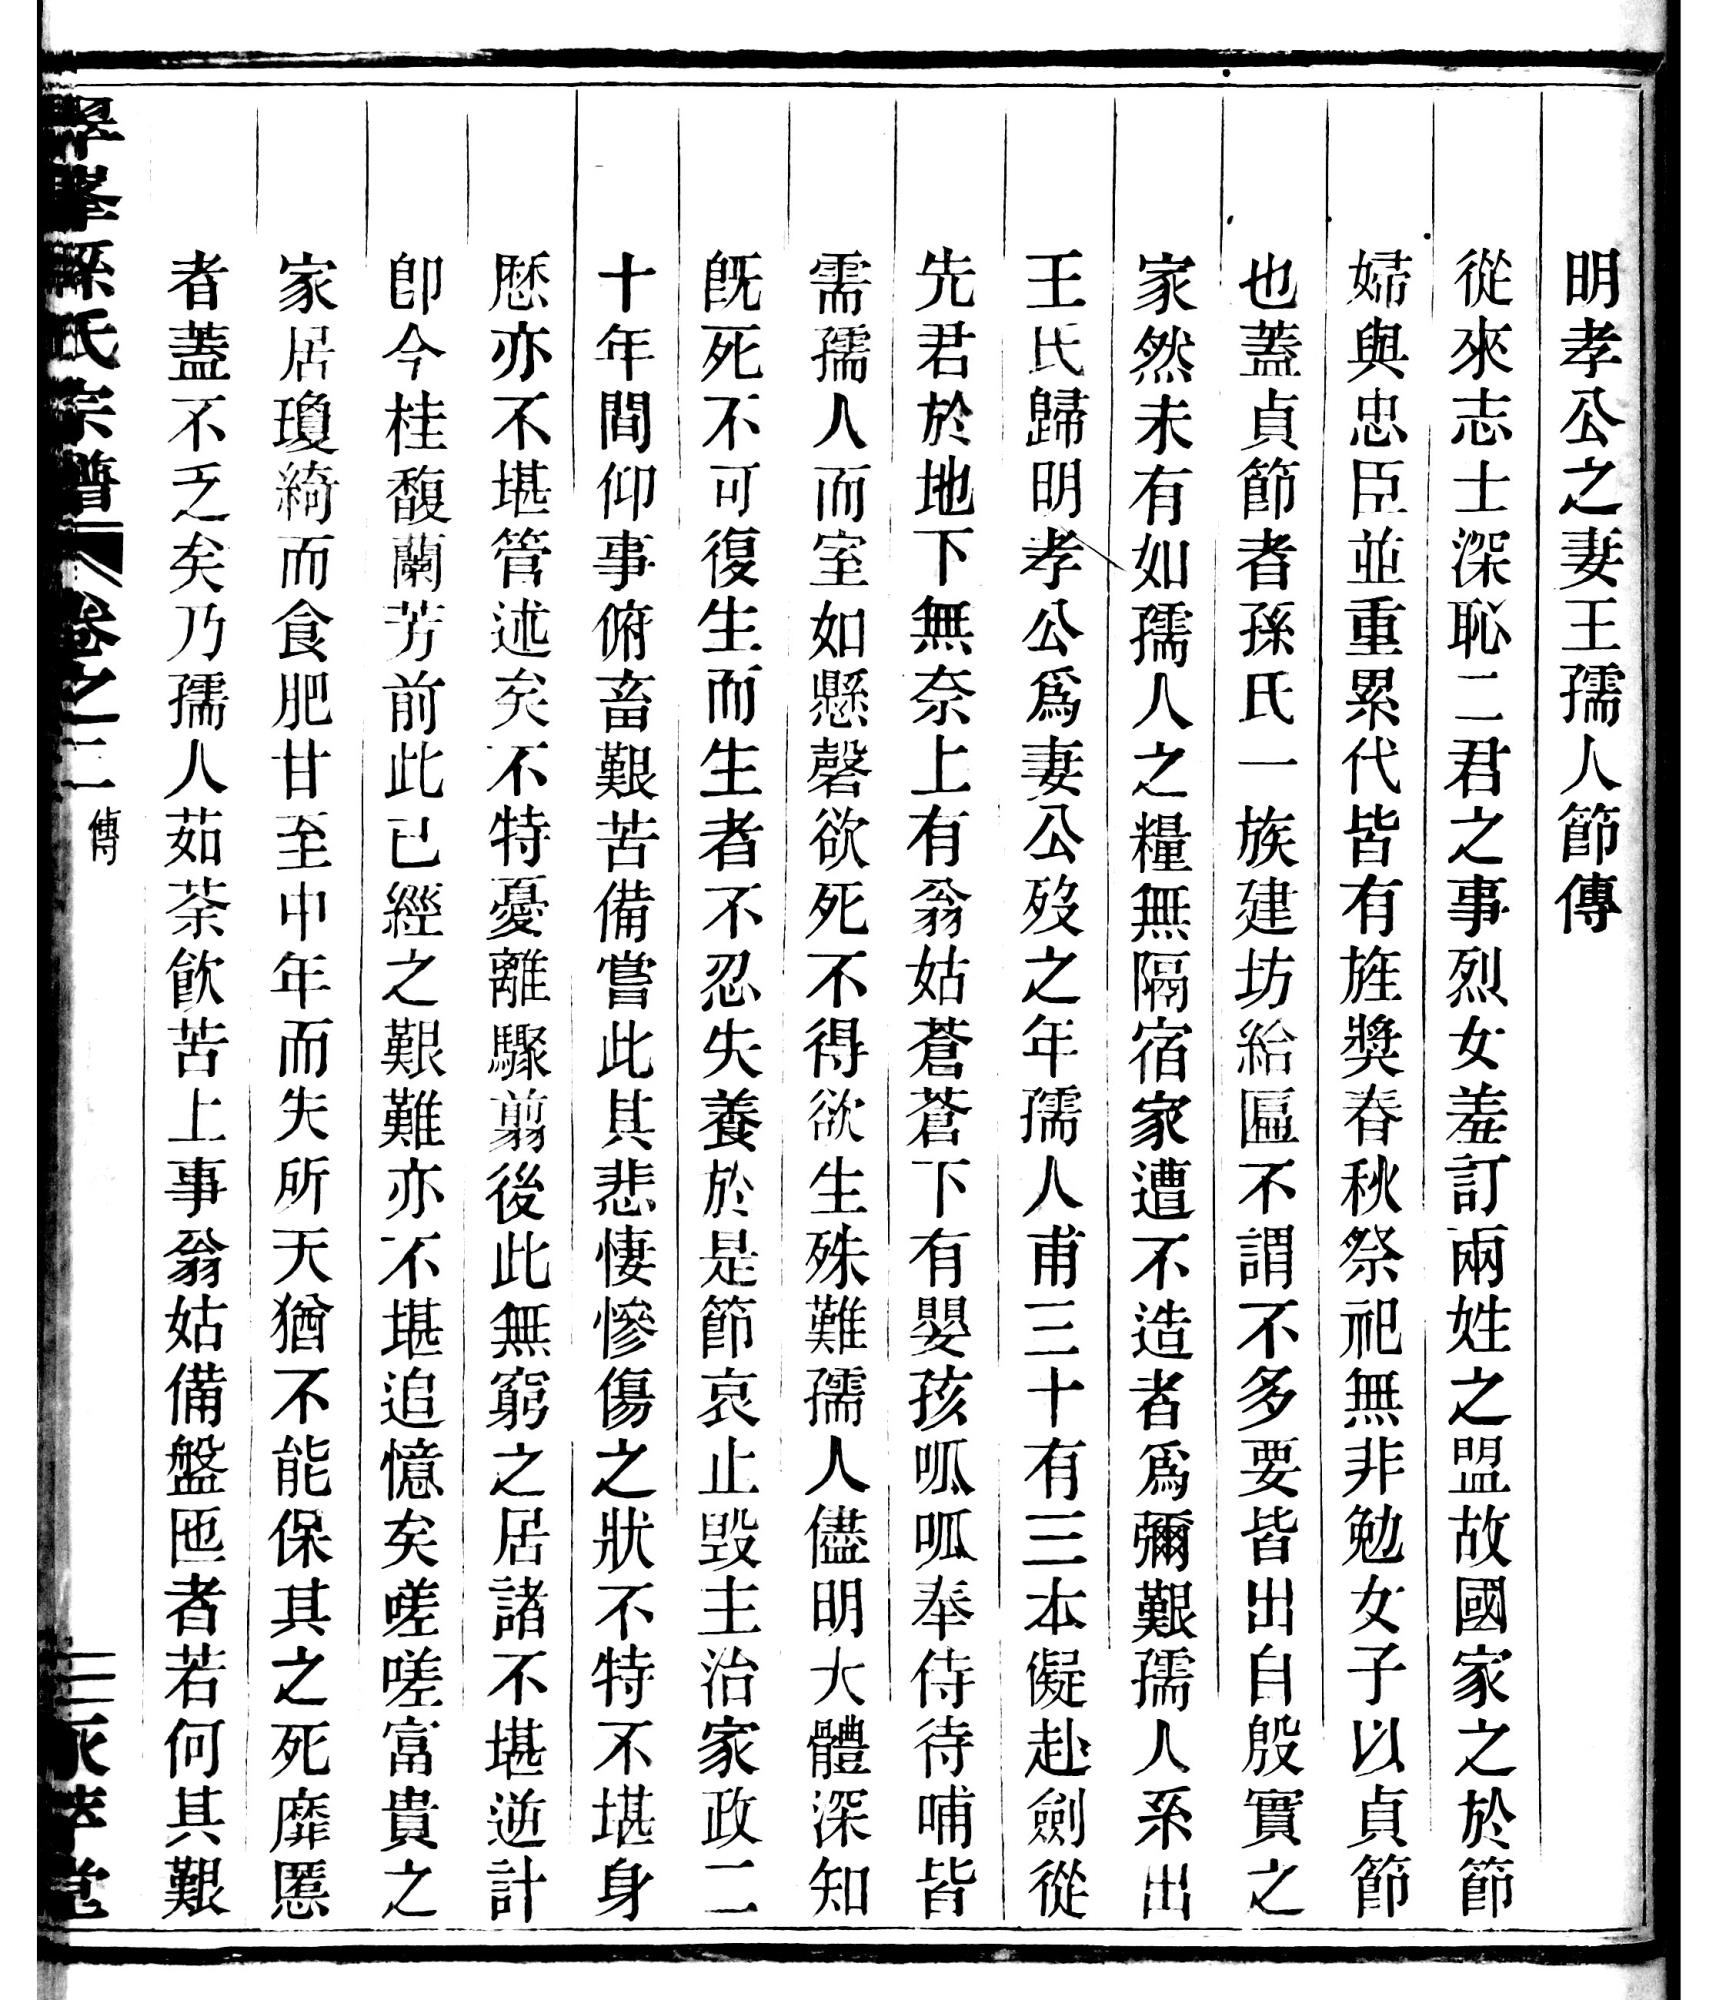 明孝公之妻王孺人節傳
從來志士深恥二君之事烈女羞訂兩姓之盟故國家之於節
婦與忠臣並重累代皆有旌獎春秋祭祀無非勉女子以貞節
也蓋貞節者孫氏一族建坊給匾不謂不多要皆出自殷實之
家然未有如孺人之糧無隔宿家遭不造者爲彌艱孺人系出
王氏歸明孝公爲妻公歿之年孺人甫三十有三本儗赴劍從
先君於地下無奈上有翁姑蒼蒼下有嬰孩呱呱奉侍待哺皆
需孺人而室如懸磬欲死不得欲生殊難孺人儘明大體深知
旣死不可復生而生者不忍失養於是節哀止毀主治家政二
十年間仰事俯畜艱苦備嘗此其悲悽慘傷之狀不特不堪身
歷亦不堪管述矣不特憂離驟剪後此無窮之居諸不堪逆計
卽今桂馥蘭芳前此已經之艱難亦不堪追憶矣嗟嗟富貴之
家居瓊綺而食肥甘至中年而失所天猶不能保其之死靡慝
者蓋不乏矣乃孺人茹荼飲苦上事翁姑備盤匜者若何其艱
翠峯孫氏宗譜 卷之二 傳 二 永孝堂